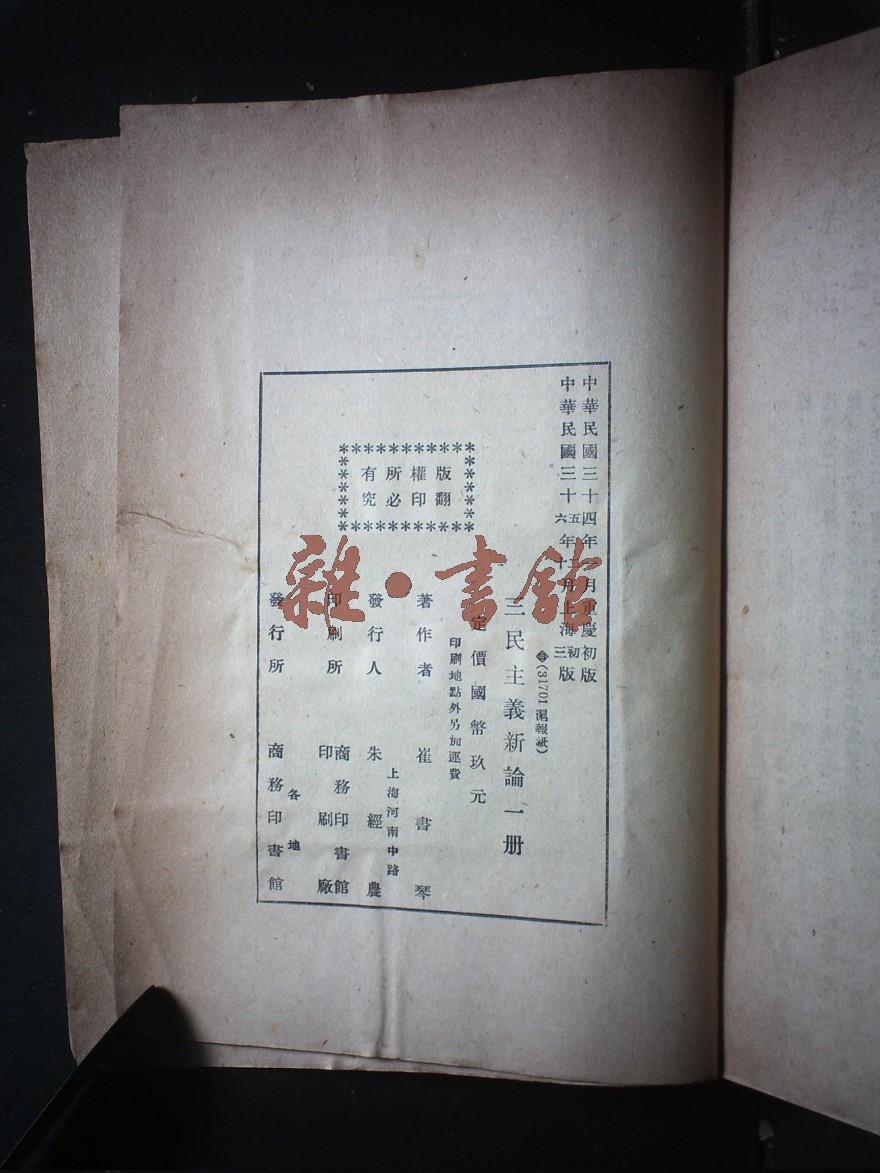 中華民國三十四年月重慶初版
中華民國三十五六年二十月上海初三版
(31701 滬報紙)
三民主義新論一册
定價國幣玖元
印刷地點外另加運費
版權所有
翻印必究
著作者 崔書琴
上海河南中路
發行人 朱經農
印刷所 商務印書館
印刷廠
各地
發行所 商務印書館
雜·書館